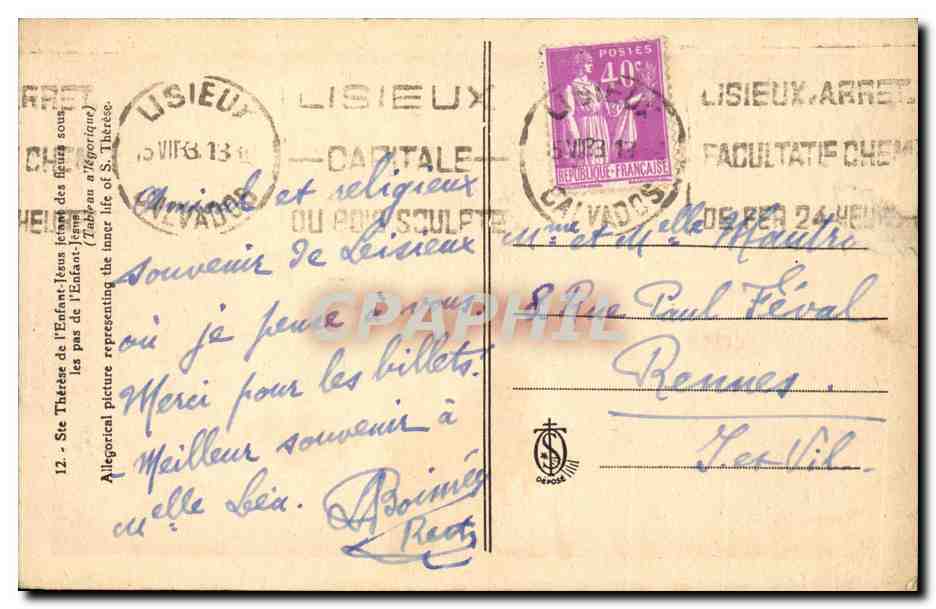 12. - Ste Thérèse de l'Enfant-Jésus jetant des fleurs sous
les pas de l'Enfant-Jésus
(Tableau allégorique)
Allegorical picture representing the inner life of S. Thérèse.
RRET
CHEM
HEURES
LISIEUX
13
CALVADOS
LISIEUX
CAPITALE
DU BOIS SCULPTE
POSTES
40c
REPUBLIQUE-FRANÇAISE
LISIEUX
CALVADOS
LISIEUX, ARRET
FACULTATIF CHEM
DE FER 24 HEURES
Amical et religieux
souvenir de Lisieux
où je pense à vous.
Merci pour les billets!
Meilleur souvenir à
Melle Léa.
Mme et Melle
8 Rue Paul Féval
Rennes.
I. et Vil.
DÉPOSÉ
CPAPHIL